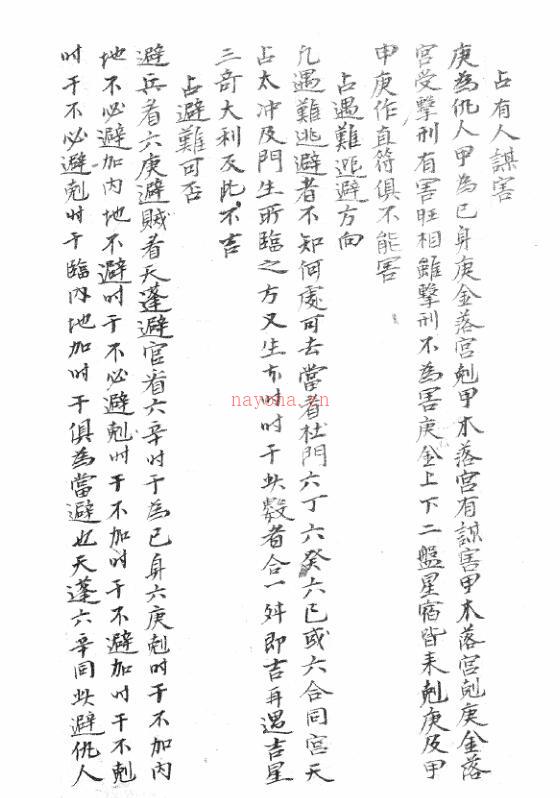 占有人謀害
庚為仇人甲為己身庚金落宮剋甲木落宮有謀害甲木落宮剋庚金落
宮受擊刑有害旺相雖擊刑不為害庚金上下二盤星宿皆来剋庚及甲
甲庚作直符俱不能害
占遇難逃避方向
凡遇難逃避者不知何處可去當看杜門六丁六癸六己或六合同宮天
占太冲及門生所臨之方又生本时时干此數者合一舛即吉再遇吉星
三奇大利反此不吉
占避難可否
避兵者六庚避賊者天蓬避官者六辛时干為己身六庚剋时干不加内
地不必避加内地不避时干不必避剋时干不加时干不避加时干不剋
时干不必避剋时干臨内地加时干俱為當避也天蓬六辛同此避仇人
nayoha.vn